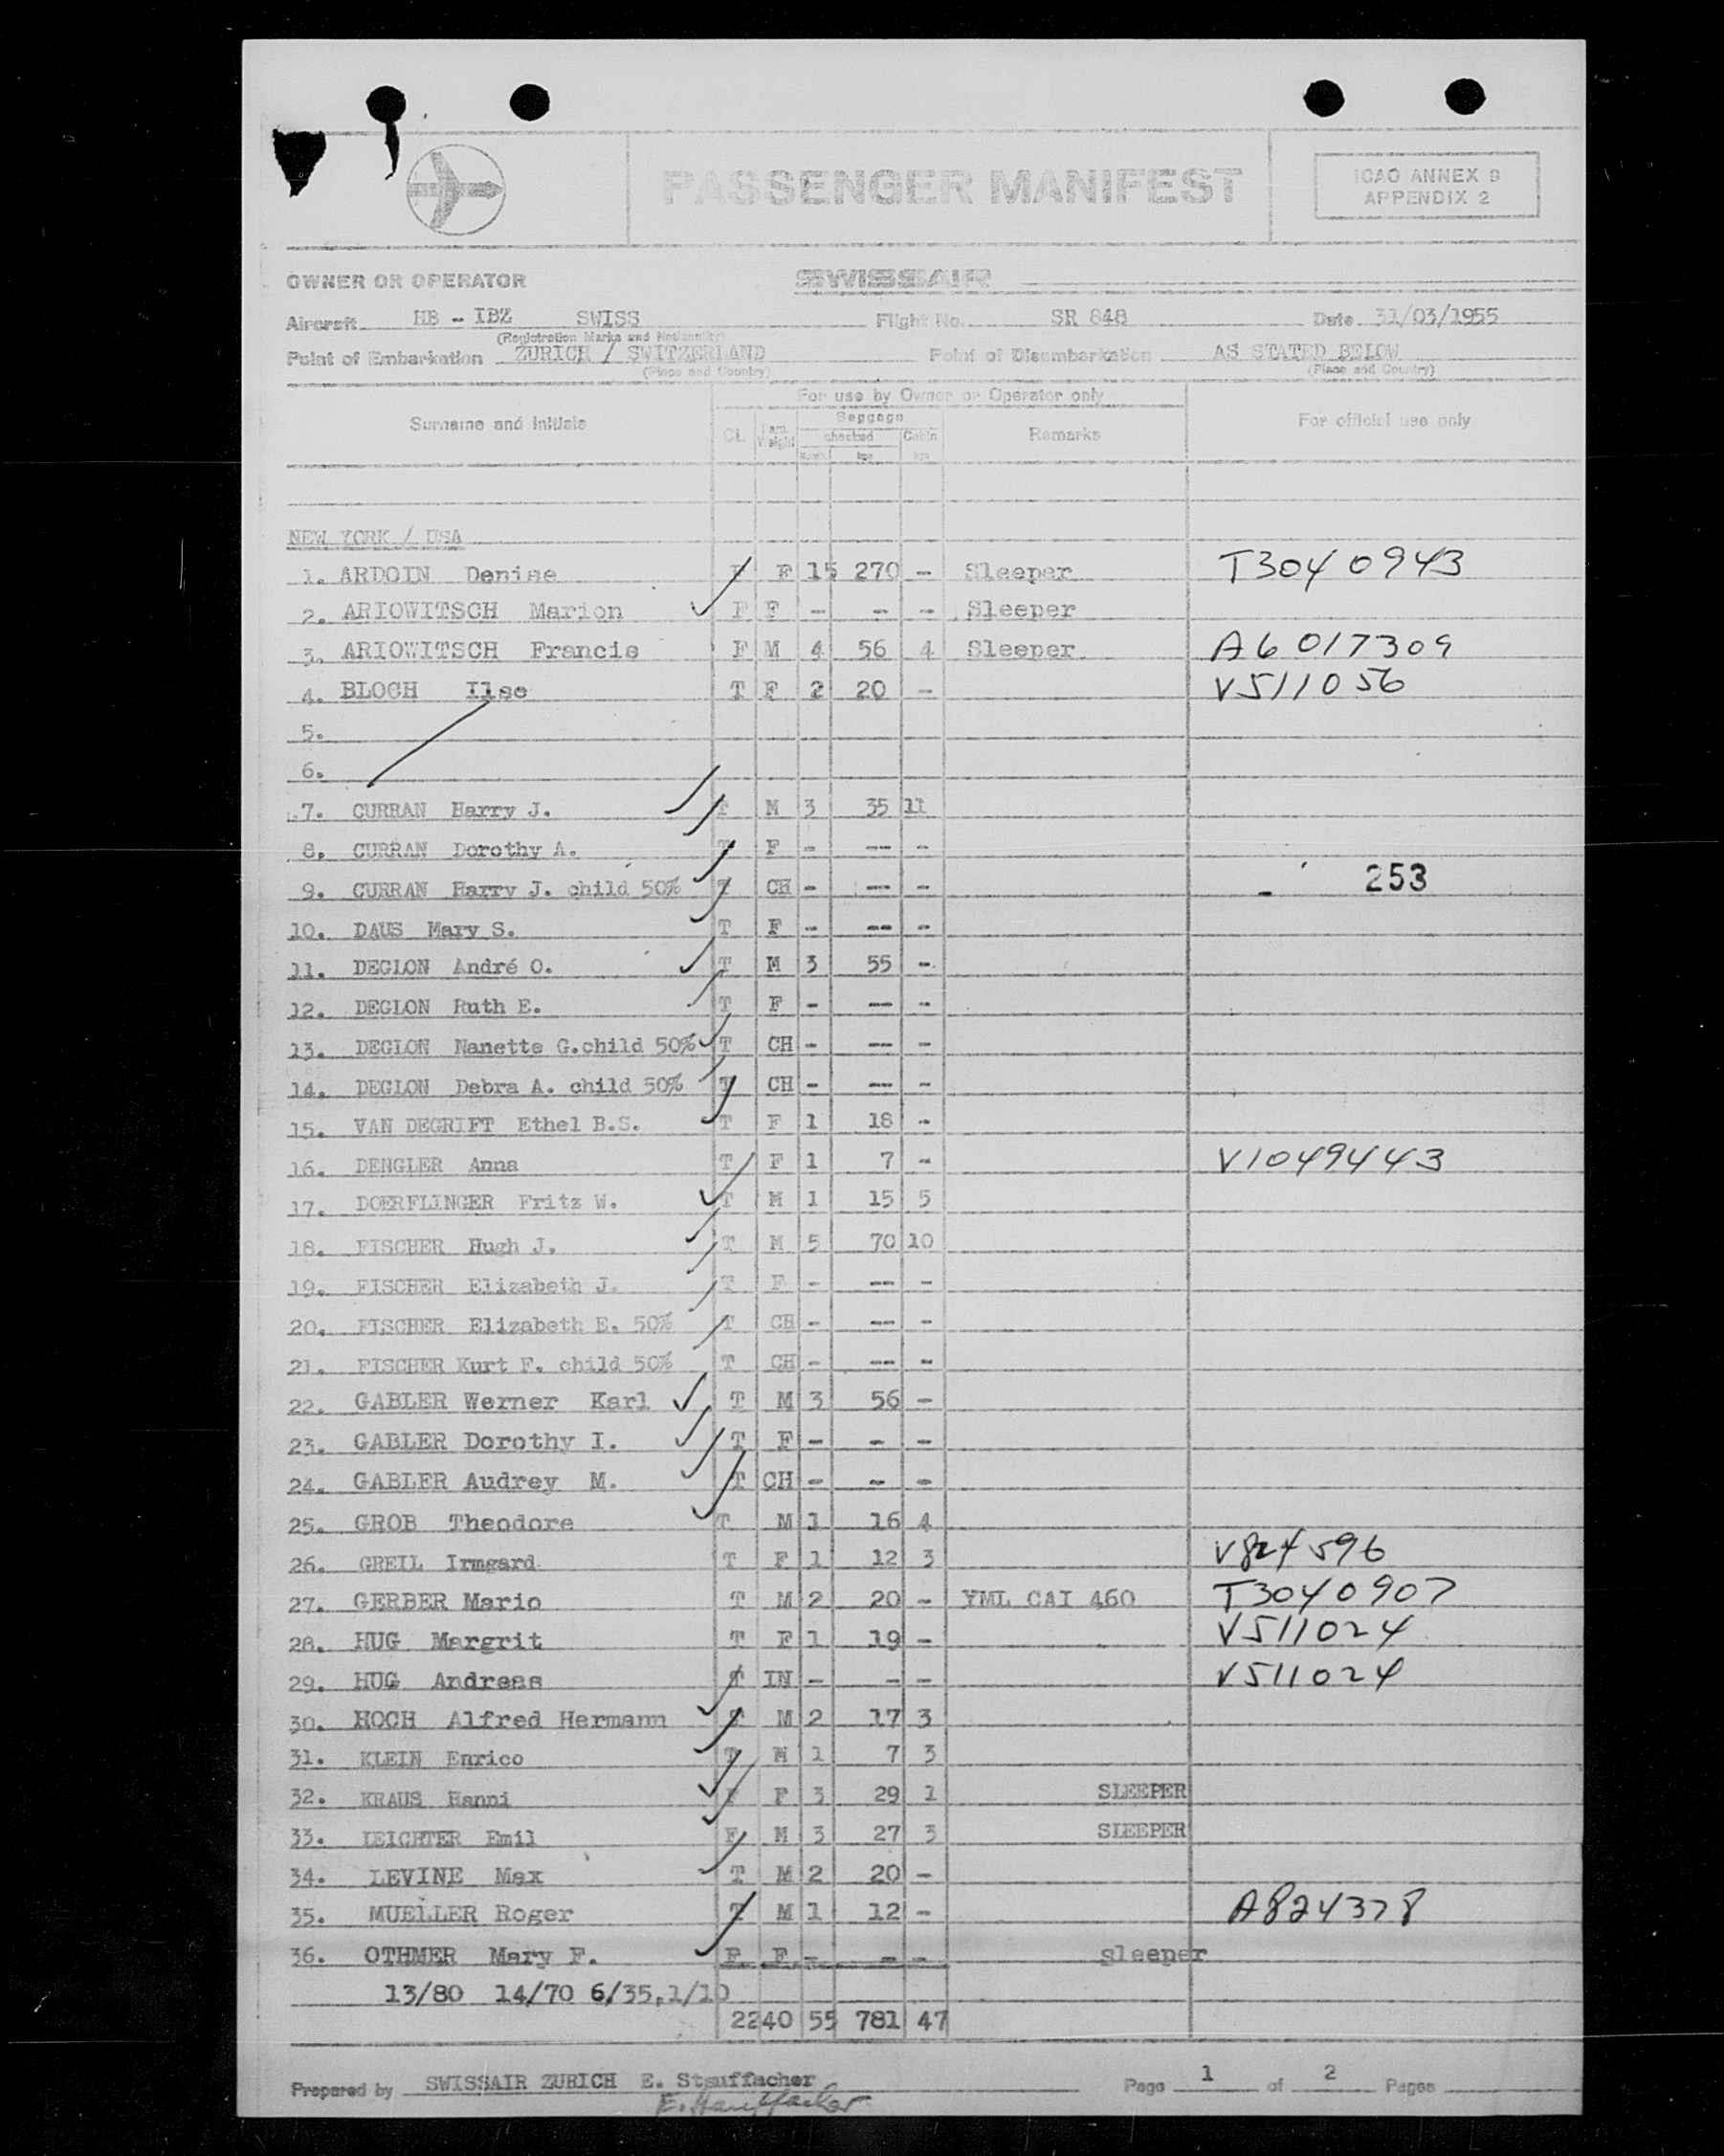 PASSENGER MANIFEST
ICAO ANNEX 9
APPENDIX 2
OWNER OR OPERATOR SWISSAIR
Aircraft HB - IBZ SWISS Flight No. SR 848 Date 31/03/1955
(Registration Marks and Nationality)
Point of Embarkation ZURICH / SWITZERLAND Point of Disembarkation AS STATED BELOW
(Place and Country) (Place and Country)
For use by Owner or Operator only
Surname and Initials Cl. Weight Baggage checked Cabin Remarks For official use only
kgs
NEW YORK / USA
1. ARDOIN Denise F F 15 270 - Sleeper T3040943
2. ARIOWITSCH Marion F F - - - Sleeper
3. ARIOWITSCH Francis F M 4 56 4 Sleeper A6 017309
4. BLOCH Ilse T F 2 20 - V511056
5.
6.
7. CURRAN Harry J. T M 3 35 11
8. CURRAN Dorothy A. T F - -- -
9. CURRAN Harry J. child 50% T CH - -- - 253
10. DAUS Mary S. T F - -- -
11. DEGLON André O. T M 3 55 -
12. DEGLON Ruth E. T F - -- -
13. DEGLON Nanette G.child 50% T CH - -- -
14. DEGLON Debra A. child 50% T CH - -- -
15. VAN DEGRIFT Ethel B.S. T F 1 18 -
16. DENGLER Anna T F 1 7 - V1049443
17. DOERFLINGER Fritz W. T M 1 15 5
18. FISCHER Hugh J. T M 5 70 10
19. FISCHER Elizabeth J. T F - -- -
20. FISCHER Elizabeth E. 50% T CH - -- -
21. FISCHER Kurt F. child 50% T CH - -- -
22. GABLER Werner Karl T M 3 56 -
23. GABLER Dorothy I. T F - - -
24. GABLER Audrey M. T CH - - -
25. GROB Theodore T M 1 16 4
26. GREIL Irmgard T F 1 12 3 V824596
27. GERBER Mario T M 2 20 - YML CAI 460 T3040907
28. HUG Margrit T F 1 19 - V511024
29. HUG Andreas T IN - - - V511024
30. HOCH Alfred Hermann T M 2 17 3
31. KLEIN Enrico T M 1 7 3
32. KRAUS Hanni F F 3 29 1 SLEEPER
33. LEICHTER Emil F M 3 27 3 SLEEPER
34. LEVINE Max T M 2 20 -
35. MUELLER Roger T M 1 12 - A824378
36. OTHMER Mary F. F F - - - sleeper
13/80 14/70 6/35,1/10
2240 55 781 47
Prepared by SWISSAIR ZURICH E. Stauffacher Page 1 of 2 Pages
E. Stauffacher